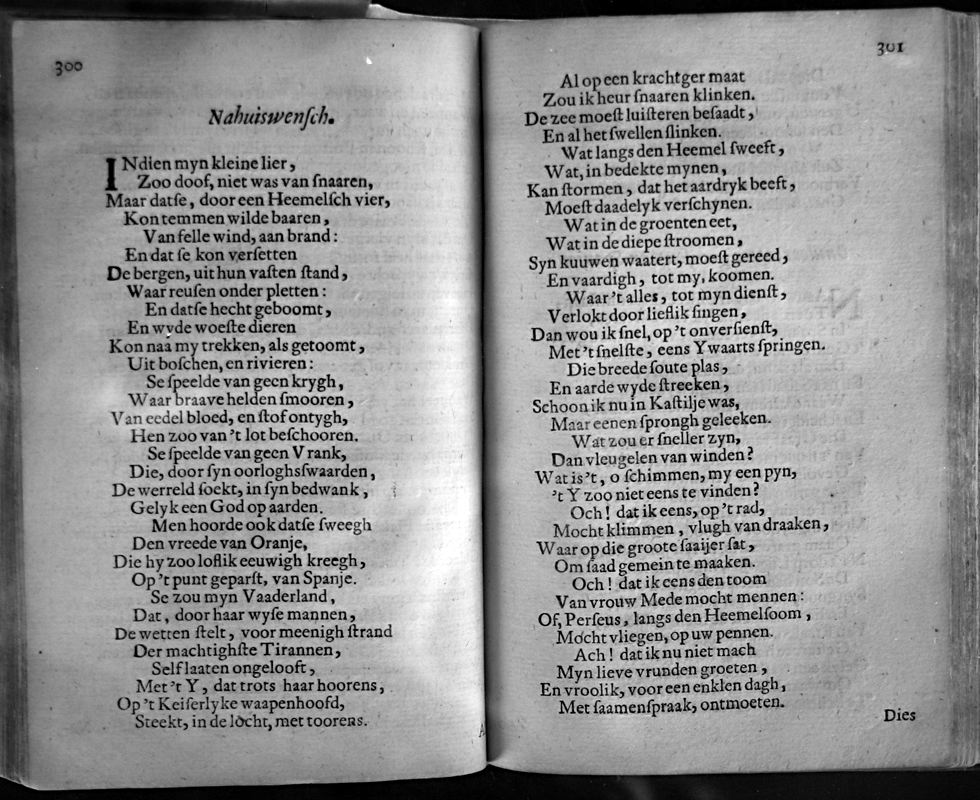 300
Nahuiswenſch.
INdien myn kleine lier,
Zoo doof, niet was van ſnaaren,
Maar datſe, door een Heemelſch vier,
Kon temmen wilde baaren,
Van felle wind, aan brand:
En dat ſe kon verſetten
De bergen, uit hun vaſten ſtand,
Waar reuſen onder pletten:
En datſe hecht geboomt,
En wyde woeſte dieren
Kon naa my trekken, als getoomt,
Uit boſchen, en rivieren:
Se ſpeelde van geen krygh,
Waar braave helden ſmooren,
Van eedel bloed, en ſtof ontygh,
Hen zoo van 't lot beſchooren.
Se ſpeelde van geen Vrank,
Die, door ſyn oorloghſwaarden,
De werreld ſoekt, in ſyn bedwank,
Gelyk een God op aarden.
Men hoorde ook datſe ſweegh
Den vreede van Oranje,
Die hy zoo loflik eeuwigh kreegh,
Op 't punt geparſt, van Spanje.
Se zou myn Vaaderland,
Dat, door haar wyſe mannen,
De wetten ſtelt, voor meenigh ſtrand
Der machtighſte Tirannen,
Self laaten ongelooft,
Met 't Y, dat trots haar hoorens,
Op 't Keiſerlyke waapenhoofd,
Steekt, in de locht, met toorens.
301
Al op een krachtger maat
Zou ik heur ſnaaren klinken.
De zee moeſt luiſteren beſaadt,
En al het ſwellen ſlinken.
Wat langs den Heemel ſweeft,
Wat, in bedekte mynen,
Kan ſtormen, dat het aardryk beeft,
Moeſt daadelyk verſchynen.
Wat in de groenten eet,
Wat in de diepe ſtroomen,
Syn kuuwen waatert, moeſt gereed,
En vaardigh, tot my, koomen.
Waar 't alles, tot myn dienſt,
Verlokt door lieflik ſingen,
Dan wou ik ſnel, op 't onverſienſt,
Met 't ſnelſte, eens Ywaarts ſpringen.
Die breede ſoute plas,
En aarde wyde ſtreeken,
Schoon ik nu in Kaſtilje was,
Maar eenen ſprongh geleeken.
Wat zou er ſneller zyn,
Dan vleugelen van winden?
Wat is 't, o ſchimmen, my een pyn,
't Y zoo niet eens te vinden?
Och! dat ik eens, op 't rad,
Mocht klimmen, vlugh van draaken,
Waar op die groote ſaaijer ſat,
Om ſaad gemein te maaken.
Och! dat ik eens den toom
Van vrouw Mede mocht mennen:
Of, Perſeus, langs den Heemelſoom,
Mocht vliegen, op uw pennen.
Ach! dat ik nu niet mach
Myn lieve vrunden groeten,
En vroolik, voor een enklen dagh,
Met ſaamenſpraak, ontmoeten.
Dies